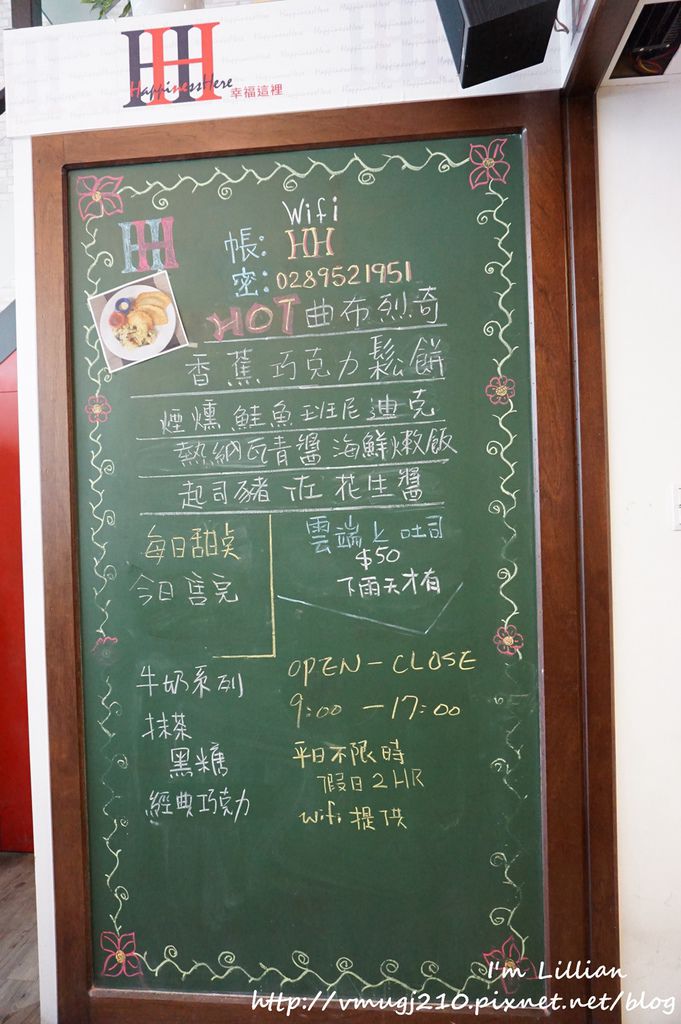 HH
HappinessHere 幸福這裡
HH
Wifi
帳: HH
密: 0289521951
HOT 曲布列奇
香蕉巧克力鬆餅
煙燻鮭魚班尼迪克
熱納瓦青醬海鮮燉飯
起司豬佐花生醬
每日甜點
今日售完
雲端上吐司
$50
下雨天才有
牛奶系列
抹茶
黑糖
經典巧克力
OPEN - CLOSE
9:00 - 17:00
平日不限時
假日2HR
wifi 提供
I'm Lillian
http://vmugj210.pixnet.net/blog